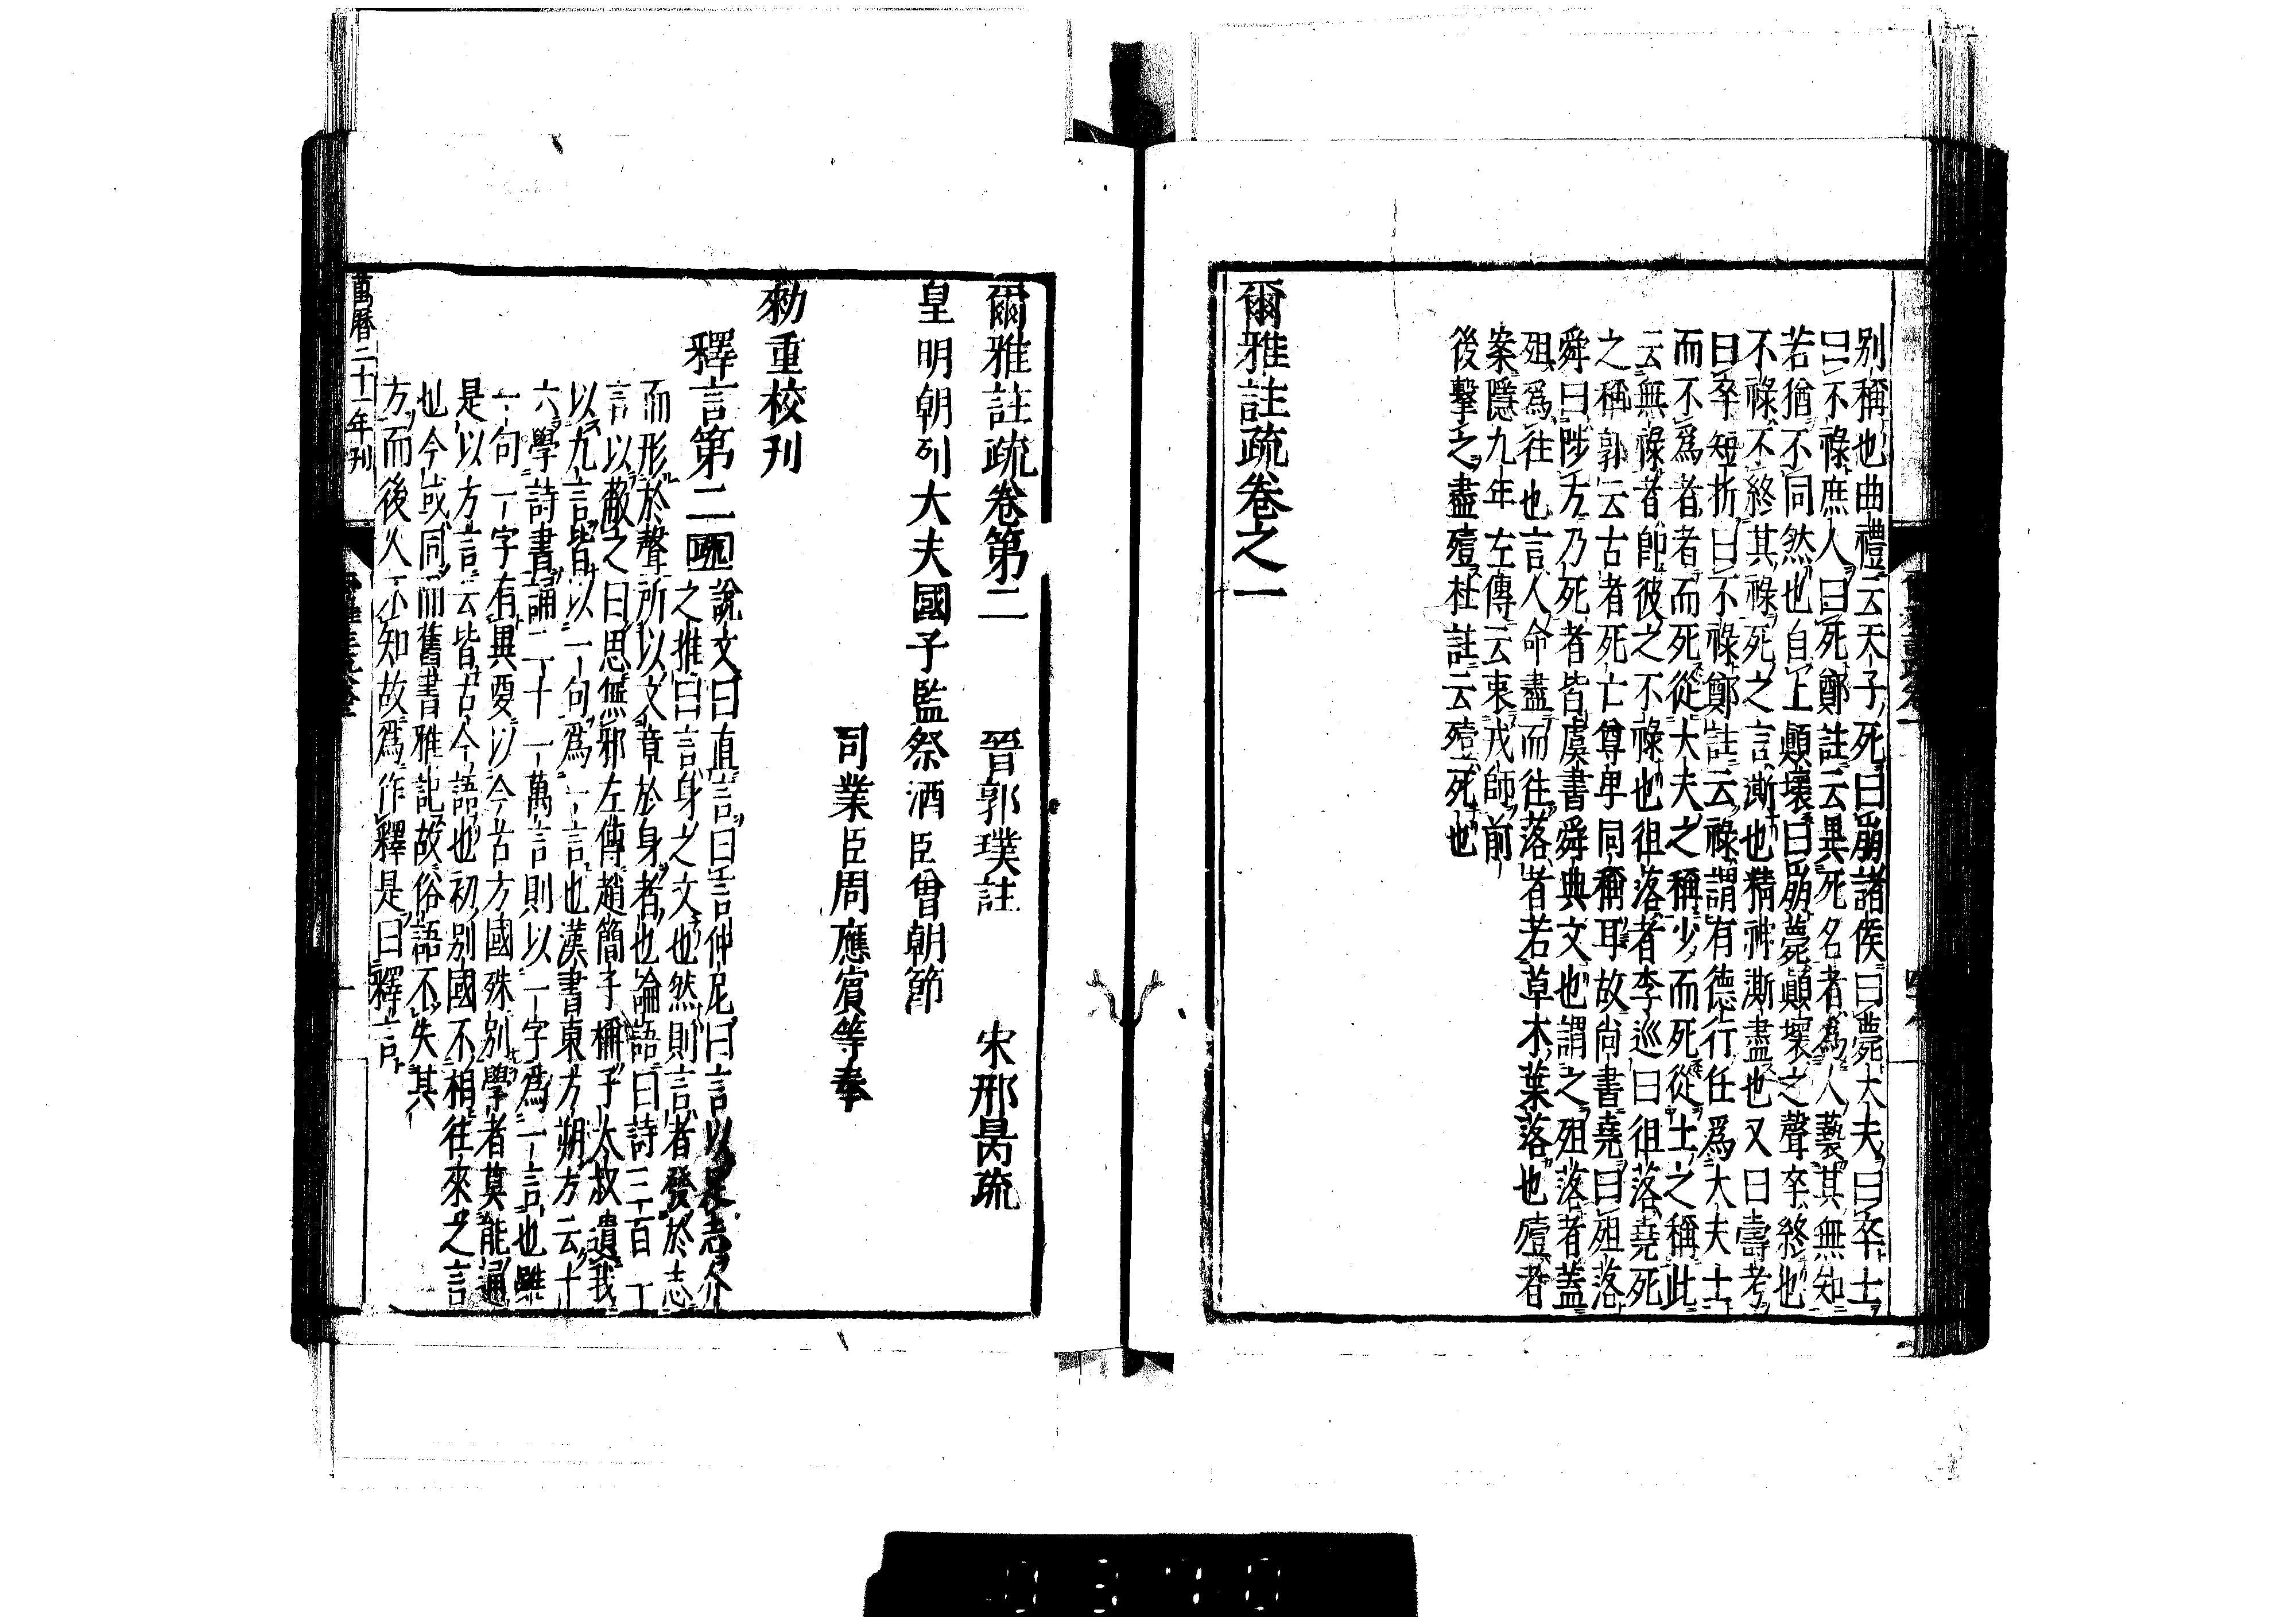 别稱也曲禮云天子死曰崩諸侯曰薨大夫曰卒士
曰不祿庶人曰死鄭註云異死名者爲人䙝其無知
若猶不同然也自上顚壞曰崩薨顚壞之聲卒終也
不祿不終其祿死之言澌也精神澌盡也又曰壽考
曰卒短折曰不祿鄭註云祿謂有德行任爲大夫士
而不爲者者而死從大夫之稱少而死從士之稱此
云無祿者卽彼之不祿也徂落者李巡曰徂落堯死
之稱郭云古者死亡尊卑同稱耳故尚書堯曰殂落
舜曰陟方乃死者皆虞書舜典文也謂之殂落者蓋
殂爲往也言人命盡而往落者若草木葉落也殪者
案隱九年左傳云衷戎師前
後擊之盡殪杜註云殪死也
爾雅註疏卷之一
爾雅註疏卷第二 晉郭璞註 宋邢昺疏
皇明朝列大夫國子監祭酒臣曾朝節
司業臣周應賔等奉
勑重校刊
釋言第二 疏 說文曰直言曰言仲尼曰言以足志介
之推曰言身之文也然則言者發於志
而形於聲所以文章於身者也論語曰詩三百一
言以蔽之曰思無邪左傳趙簡子稱子太叔遺我
以九言皆以一句爲一言也漢書東方朔方云十
六學詩書誦二十一萬言則以一字爲一言也雖
一句一字有異要以今古方國殊别學者莫能通
是以方言云皆古今語也初别國不相往來之言
也今或同而舊書雅記故俗語不失其
方而後人不知故爲作釋是曰釋言
萬曆二十一年刊